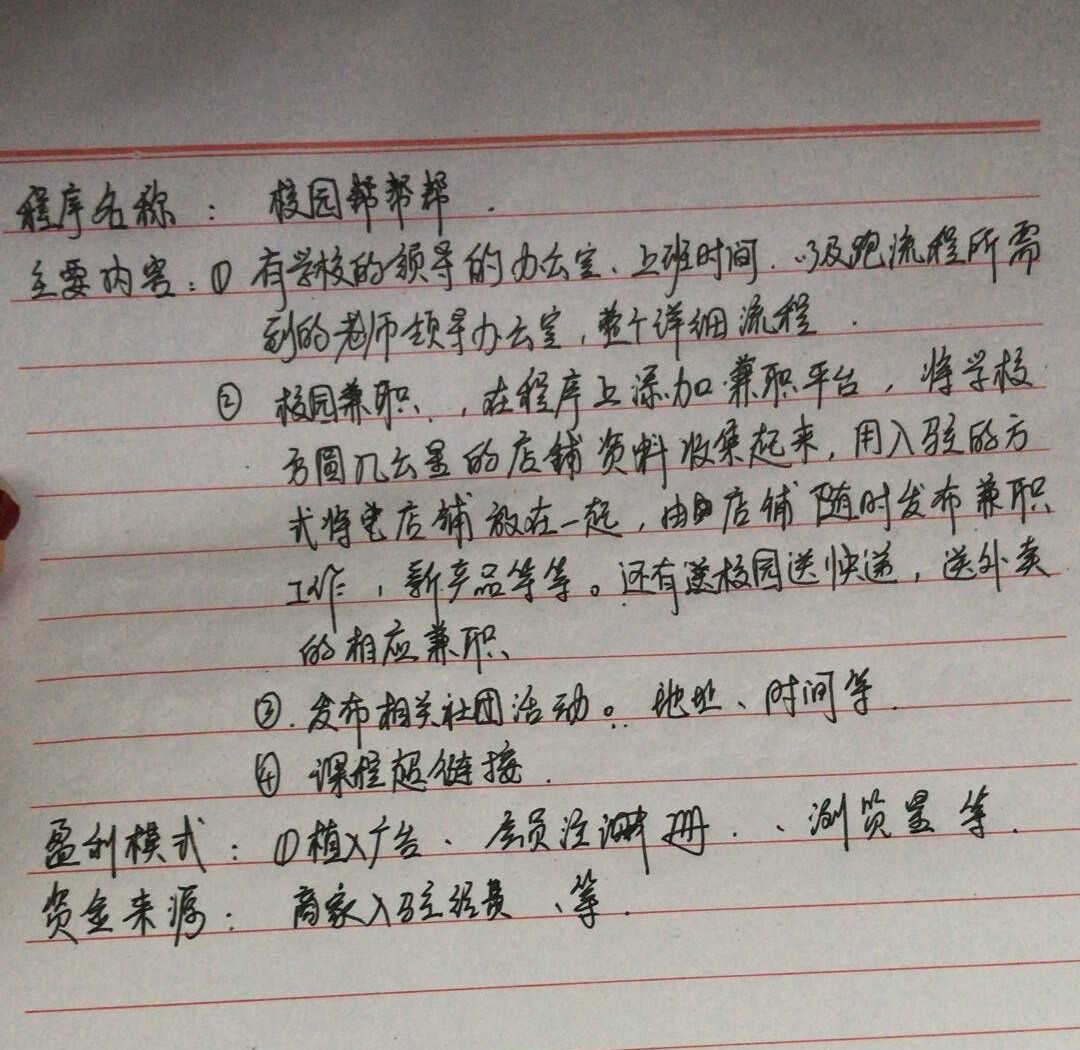 程序名称： 校园帮帮帮.
主要内容：① 有学校的领导的办公室、上班时间.以及跑流程所需
到的老师领导办公室，整个详细流程.
② 校园兼职、，在程序上添加兼职平台，将学校
方圆几公里的店铺资料收集起来，用入驻的方
式将店铺放在一起，由店铺随时发布兼职
工作，新产品等等。还有校园送快递，送外卖
的相应兼职、
③.发布相关社团活动。地址、时间等.
④ 课程超链接.
盈利模式：①植入广告、会员注册.、浏览量等.
资金来源： 商家入驻经费、等.